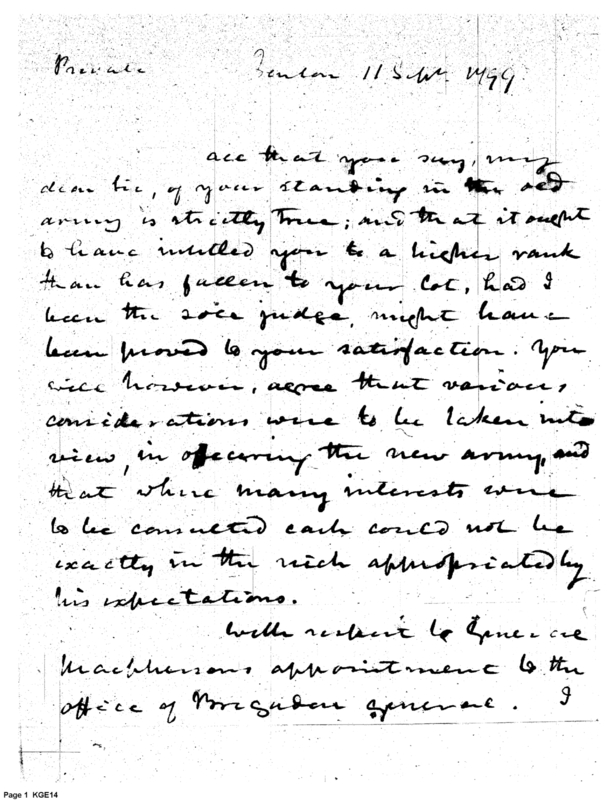 Private Trenton 11 Sepr 1799
all that you say, my
dear Sir, of your standing in the old
army is strictly true; and that it ought
to have intitled you to a higher rank
than has fallen to your lot, had I
been the sole judge, might have
been proved to your satisfaction. You
will however, agree that various
considerations were to be taken into
view, in officering the new army, and
that where many interests were
to be consulted each could not be
exactly in the nich appropriated by
his expectations.
With respect to General
Macphersons appointment to the
office of Brigadier general. I
Page 1 KGE14